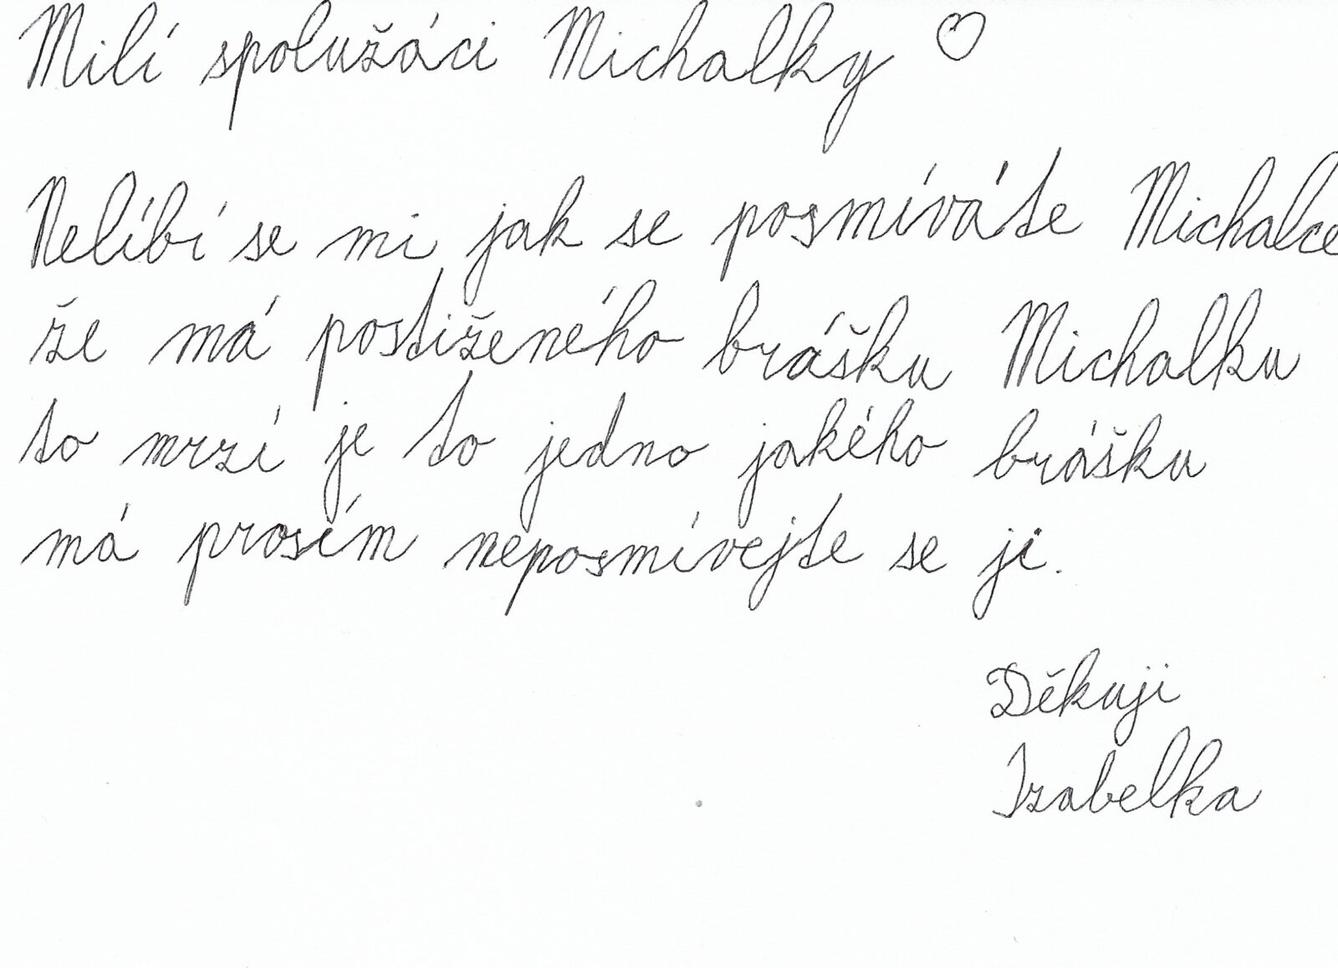 Milí spolužáci Michalky ♡
Nelíbí se mi jak se posmíváte Michalce
že má postiženého brášku Michalku
to mrzí je to jedno jakého brášku
má prosím neposmívejte se ji.
Děkuji
Izabelka